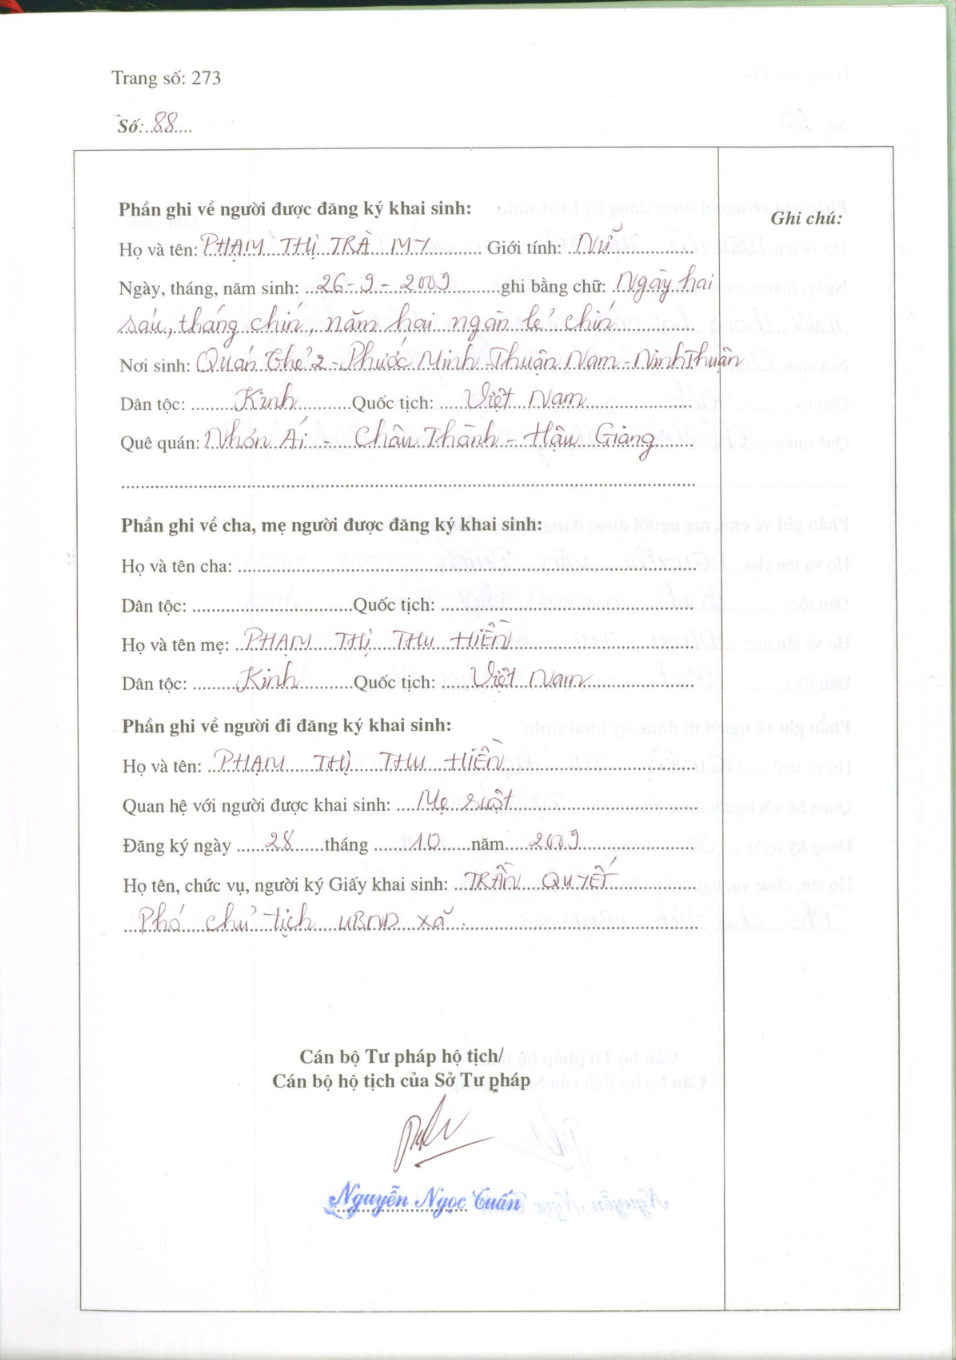 Trang số: 273
Số: 88
Phần ghi về người được đăng ký khai sinh:
Ghi chú:
Họ và tên: PHẠM THỊ TRÀ MY Giới tính: Nữ
Ngày, tháng, năm sinh: 26-9-2009 ghi bằng chữ: Ngày hai
sáu, tháng chín, năm hai ngàn lẻ chín
Nơi sinh: Quán Thẻ 2 - Phước Minh - Thuận Nam - Ninh Thuận
Dân tộc: Kinh Quốc tịch: Việt Nam
Quê quán: Nhơn Ái - Châu Thành - Hậu Giang
Phần ghi về cha, mẹ người được đăng ký khai sinh:
Họ và tên cha:
Dân tộc: Quốc tịch:
Họ và tên mẹ: PHẠM THỊ THU HIỀN
Dân tộc: Kinh Quốc tịch: Việt Nam
Phần ghi về người đi đăng ký khai sinh:
Họ và tên: PHẠM THỊ THU HIỀN
Quan hệ với người được khai sinh: Mẹ ruột
Đăng ký ngày 28 tháng 10 năm 2009
Họ tên, chức vụ, người ký Giấy khai sinh: TRẦN QUYẾT
Phó chủ tịch UBND xã.
Cán bộ Tư pháp hộ tịch/
Cán bộ hộ tịch của Sở Tư pháp
Nguyễn Ngọc Tuấn